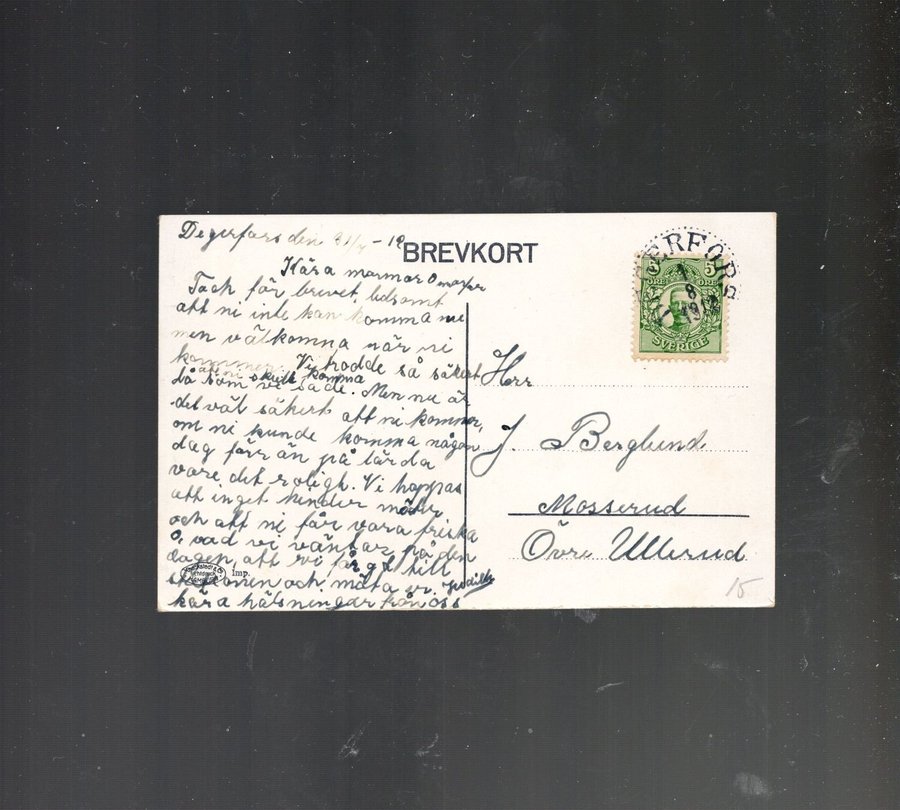 Degerfors den 31/7 - 19
BREVKORT
Kära mormor o morfar
Tack för brevet, ledsamt
att ni inte kan komma nu
men välkomna när ni
kommer. Vi trodde så säkert
att ni skulle komma
då som vi sade. Men nu är
det väl säkert att ni kommer,
om ni kunde komma någon
dag förr än på lörda
vore det roligt. Vi hoppas
att inget hinder möter
och att ni får vara friska
O, vad vi väntar på den
dagen, att vi får gå till
stationen och möta er.
kära hälsningar från oss
Imp.
DEGERFORS
1
8
5
ÖRE
SVERIGE
Herr
J. Berglund
Mosserud
Övre Ullerud
15